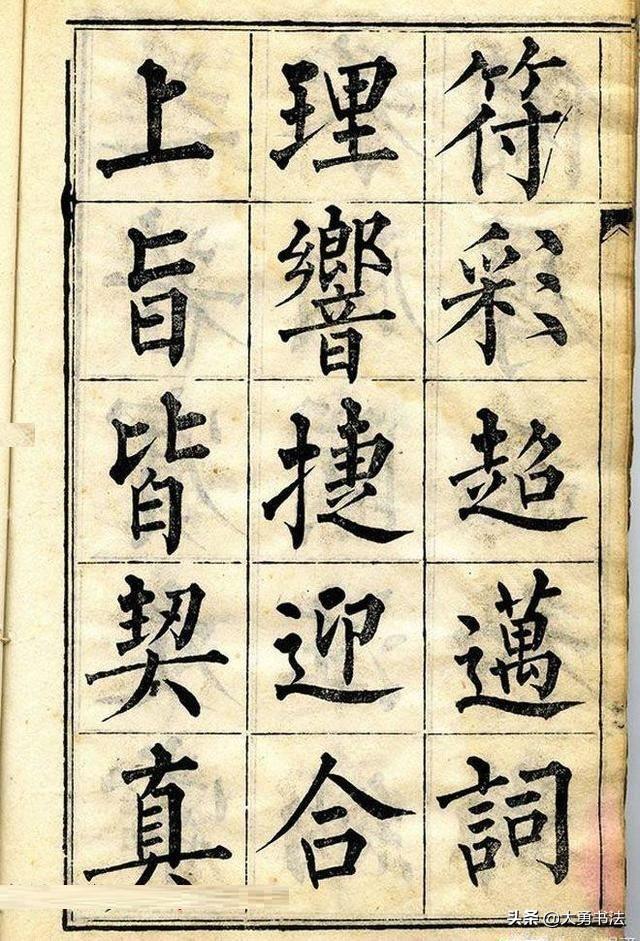 符彩超邁詞
理響捷迎合
上旨皆契真
头条 @大勇书法